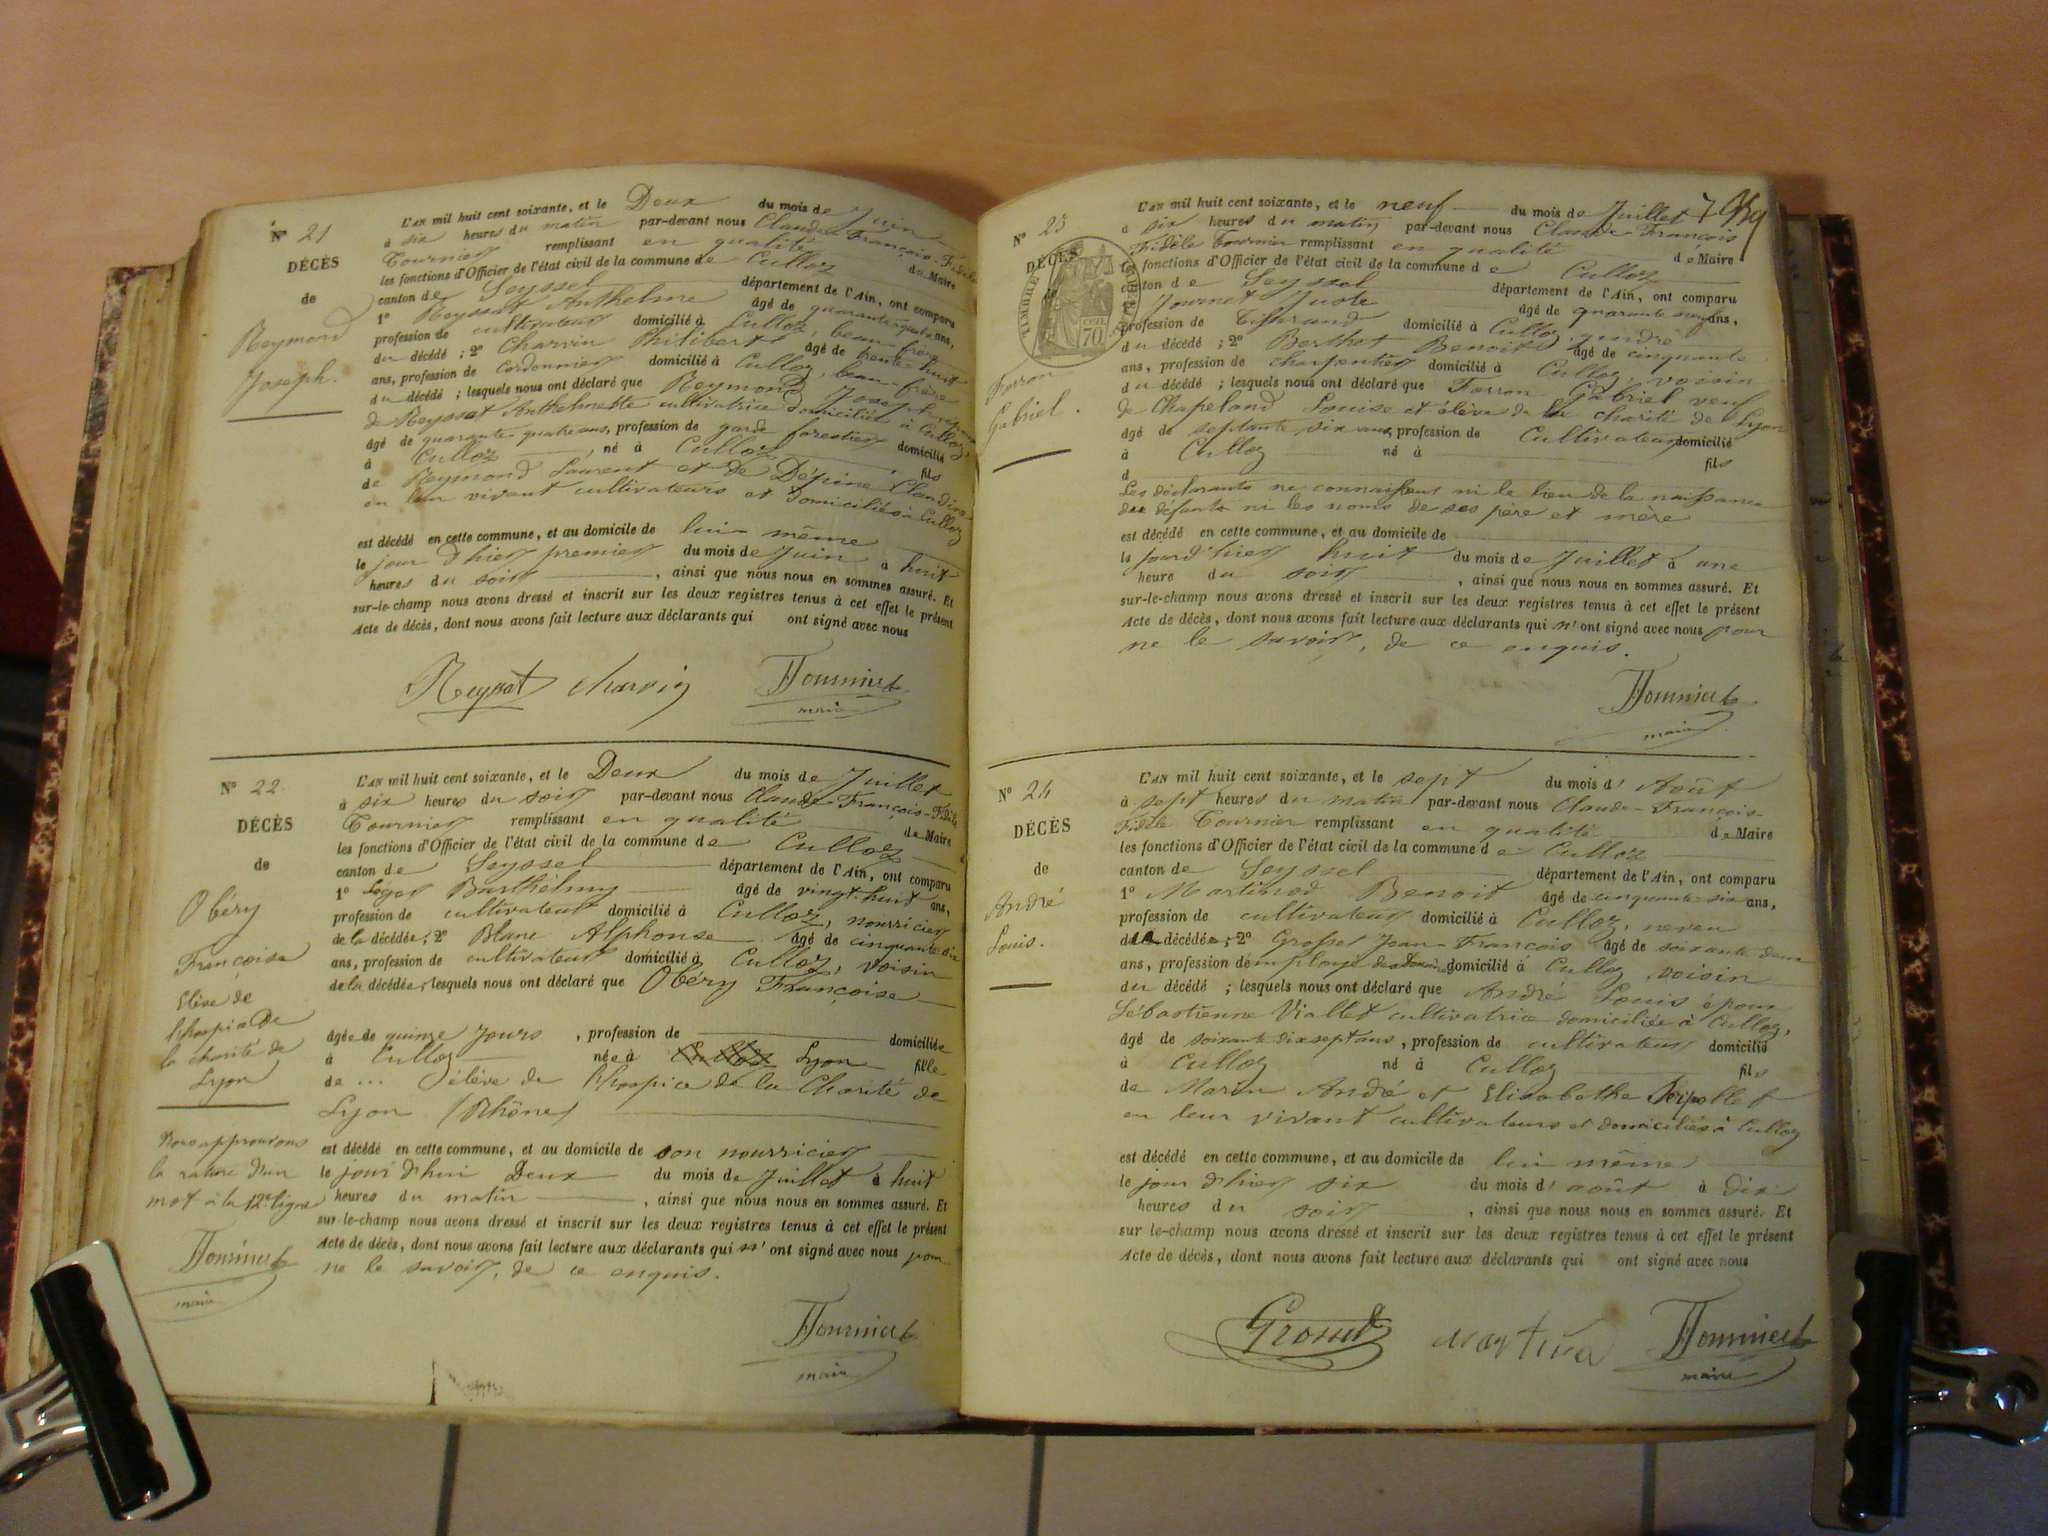 N° 21
DÉCÈS
de
Reymond
Joseph.
L'AN mil huit cent soixante, et le Deux du mois de Juin
à six heures du matin par-devant nous Claude François-Fidèle
Tournier remplissant en qualité de Maire
les fonctions d'Officier de l'état civil de la commune de Culloz
canton de Seyssel département de l'Ain, ont comparu
1° Reyssat Anthelme âgé de quarante ans,
profession de cultivateur domicilié à Culloz, beau-frère
du décédé ; 2° Charvin Philibert âgé de trente-huit
ans, profession de cordonnier domicilié à Culloz, beau-frère
du décédé ; lesquels nous ont déclaré que Reymond Joseph
de Reyssat Anthelmette cultivatrice domiciliée à Culloz,
âgé de quarante-quatre ans, profession de garde forestier domicilié
à Culloz, né à Culloz fils
de Reymond Laurent et de Dépine Claudine
en leur vivant cultivateurs et domiciliés à Culloz
est décédé en cette commune, et au domicile de lui-même
le jour d'hier premier du mois de Juin à huit
heures du soir, ainsi que nous nous en sommes assuré. Et
sur-le-champ nous avons dressé et inscrit sur les deux registres tenus à cet effet le présent
Acte de décès, dont nous avons fait lecture aux déclarants qui ont signé avec nous
Reyssat Charvin Tournier
maire
N° 22
DÉCÈS
de
Obéry
Françoise
Elève de
l'hospice de
la charité de
Lyon
Nous approuvons
la rature d'un
mot à la 12e ligne
Tournier
maire
L'AN mil huit cent soixante, et le Deux du mois de Juillet
à six heures du soir par-devant nous Claude François-Fidèle
Tournier remplissant en qualité de Maire
les fonctions d'Officier de l'état civil de la commune de Culloz
canton de Seyssel département de l'Ain, ont comparu
1° Barthélmy âgé de vingt-huit ans,
profession de cultivateur domicilié à Culloz, nourricier
de la décédée ; 2° Blanc Alphonse âgé de cinquante six
ans, profession de cultivateur domicilié à Culloz, voisin
de la décédée, lesquels nous ont déclaré que Obéry Françoise
âgée de quinze jours, profession de domiciliée
à Culloz née à Culloz Lyon fille
de ... élève de l'hospice de la Charité de
Lyon (Rhône)
est décédé en cette commune, et au domicile de son nourricier
le jour d'hui Deux du mois de Juillet à huit
heures du matin, ainsi que nous nous en sommes assuré. Et
sur-le-champ nous avons dressé et inscrit sur les deux registres tenus à cet effet le présent
Acte de décès, dont nous avons fait lecture aux déclarants qui n'ont signé avec nous pour
ne le savoir, de ce enquis.
Tournier
maire
N° 23
DÉCÈS
TIMBRE IMPÉRIAL
70
Forron
Gabriel.
L'AN mil huit cent soixante, et le neuf du mois de Juillet
à six heures du matin par-devant nous Claude François
Fidèle Tournier remplissant en qualité de Maire
les fonctions d'Officier de l'état civil de la commune de Culloz
canton de Seyssel département de l'Ain, ont comparu
Journet Juste âgé de quarante neuf ans,
profession de Tisserand domicilié à Culloz, gendre
du décédé ; 2° Berthet Benoit âgé de cinquante
ans, profession de charpentier domicilié à Culloz, voisin
du décédé ; lesquels nous ont déclaré que Forron Gabriel veuf
de Chapeland Louise et élève de la charité de Lyon
âgé de septante six ans, profession de Cultivateur domicilié
à Culloz né à fils
d
Les déclarants ne connaissent ni le lieu de la naissance
des défunts ni les noms de ses père et mère
est décédé en cette commune, et au domicile de
le jour d'hier huit du mois de Juillet à une
heure du soir, ainsi que nous nous en sommes assuré. Et
sur-le-champ nous avons dressé et inscrit sur les deux registres tenus à cet effet le présent
Acte de décès, dont nous avons fait lecture aux déclarants qui n'ont signé avec nous pour
ne le savoir, de ce enquis.
Tournier
maire
N° 24
DÉCÈS
de
André
Louis.
L'AN mil huit cent soixante, et le sept du mois d'Août
à sept heures du matin par-devant nous Claude-François-
Fidèle Tournier remplissant en qualité de Maire
les fonctions d'Officier de l'état civil de la commune de Culloz
canton de Seyssel département de l'Ain, ont comparu
1° Martinod Benoit âgé de cinquante six ans,
profession de cultivateur domicilié à Culloz, neveu
de la décédée ; 2° Grosset Jean-François âgé de soixante deux
ans, profession d'employé des Douanes domicilié à Culloz voisin
du décédé ; lesquels nous ont déclaré que André Louis époux
Sébastienne Viallet cultivatrice domiciliée à Culloz,
âgé de soixante dix sept ans, profession de cultivateur domicilié
à Culloz né à Culloz fils
de Marin André et Elisabethe
en leur vivant cultivateurs et domiciliés à Culloz
est décédé en cette commune, et au domicile de lui-même
le jour d'hier six du mois d'août à dix
heures du soir, ainsi que nous nous en sommes assuré. Et
sur-le-champ nous avons dressé et inscrit sur les deux registres tenus à cet effet le présent
Acte de décès, dont nous avons fait lecture aux déclarants qui ont signé avec nous
Grosset Martinod Tournier
maire